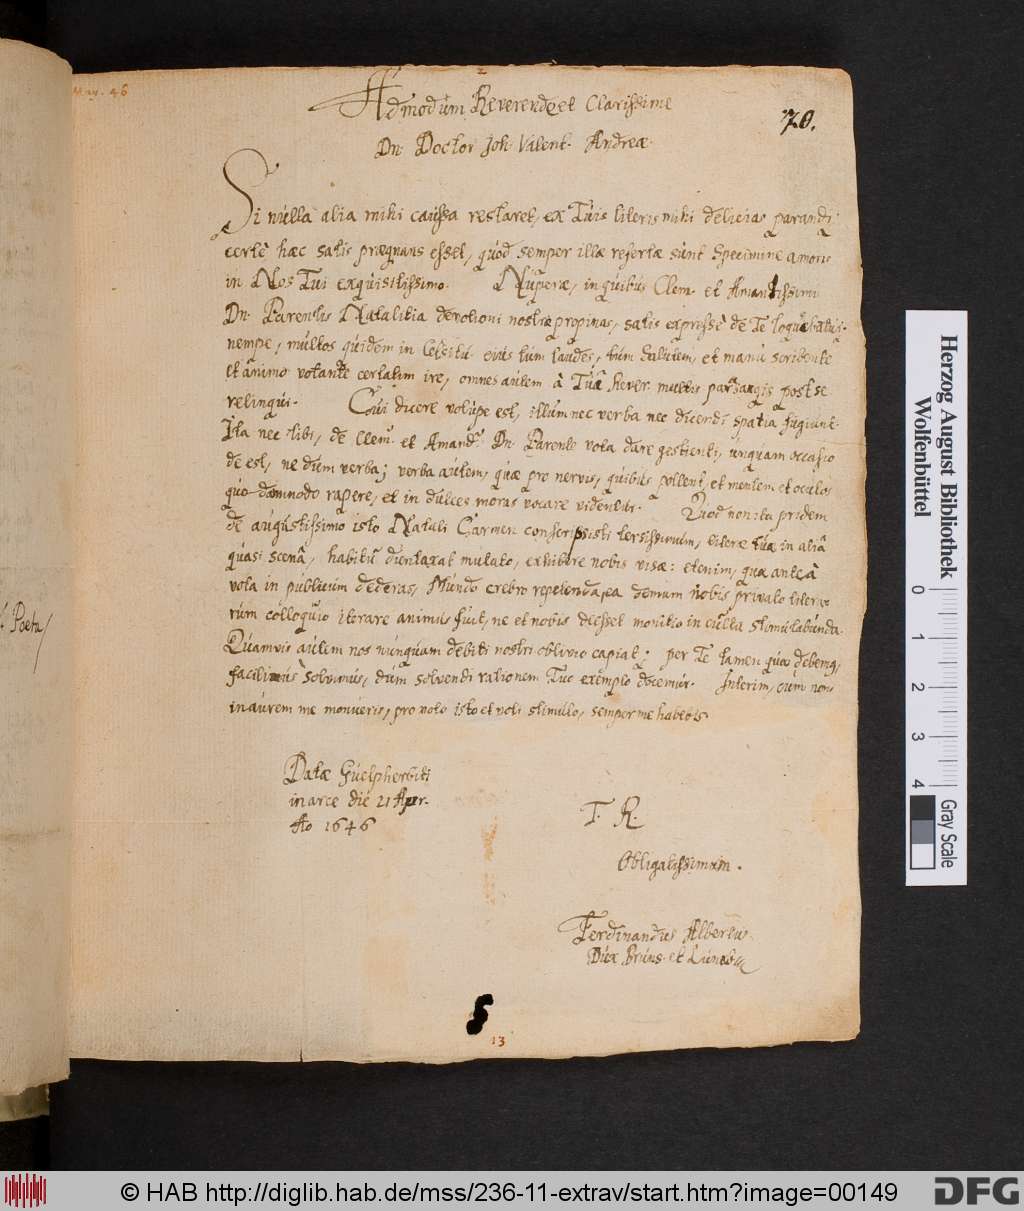 May. 46
Admodum Reverende et Clarissime
70.
Dn. Doctor Joh. Valent. Andreæ.
Si nulla alia mihi caussa restaret, ex Tuis literis mihi delicias parandi,
certè hæc satis prægnans esset, quòd semper illæ refertæ sunt specimine amoris
in Nos Tui exquisitissimo. Nuperæ, in quibus Clem. et Amantissimi
Dn. Parentis Natalitia devotioni nostræ propinas, satis expressè de Te loquebantur.
nempe, multos quidem in Celsitu. eius tum laudes, tum salutem, et manu scribente
et animo votante certatim ire, omnes autem à Tuâ Rever. multis parasangis post se
relinqui. Cui dicere volupe est, illum nec verba nec dicendi spatia fugiunt.
Ita nec tibi, de Clem. et Amand. Dn. Parente vota dare gestienti, unquam occasio
deest, ne dum verba; verba autem, quæ pro nervis, quibus pollent, et mentem et oculos
quodammodo rapere, et in dulces moras vocare videntur. Quod non ita pridem
de augustissimo isto Natali Carmen conscripsisti tersissimum, literæ tuæ in aliâ
quasi scenâ, habitu duntaxat mutato, exhibere nobis visæ: etenim, quæ anteà
vota in publicum dederas, Mundo crebro repetenda, ea demum nobis privato litera-
rum colloquio iterare animus fuit, ne et nobis deesset monitio in culta stimulabunda.
Quamvis autem nos nunquam debiti nostri oblivio capiat; per Te tamen quæ debemq,
facilimùs solvimus, dum solvendi rationem Tuo exemplo docemur. Interim, cum non
in aurem me monueris, pro voto isto et voti stimulo, semper me habebis
Datæ Guelpherbiti
in arce die 21 Apr.
Ao 1646
T. R.
Obligatissimum.
Ferdinandus Albertus
Dux Bruns. et Lunæb.
13
Poeta/
Herzog August Bibliothek
Wolfenbüttel
0 1 2 3 4
Gray Scale
© HAB http://diglib.hab.de/mss/236-11-extrav/start.htm?image=00149
DFG